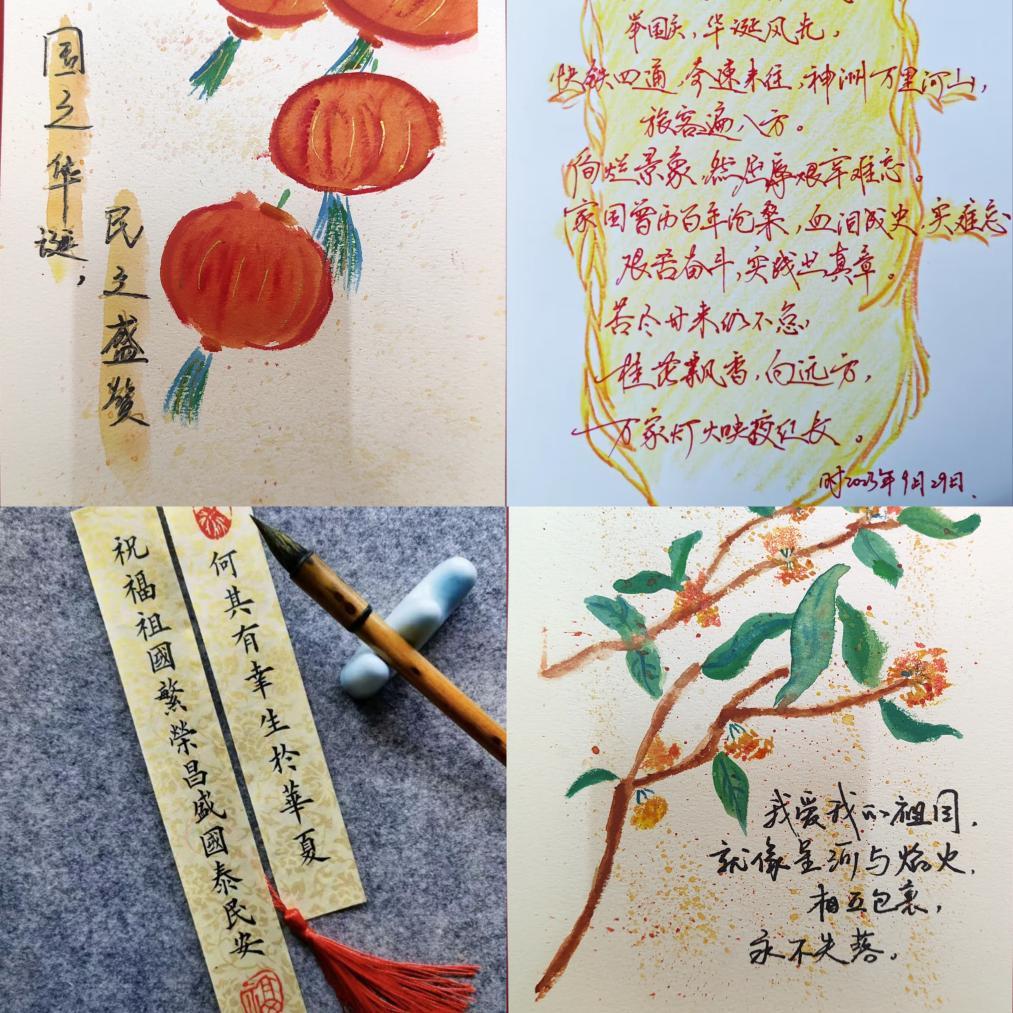 国之华诞，
民之盛赞
举国庆，华诞风光，
快铁四通，奔速来往，神洲万里河山，
旅客遍八方。
绚烂景象，然屈辱艰辛难忘。
家国曾历百年沧桑，血泪成史，实难忘
艰苦奋斗，实践出真章。
苦尽甘来仍不怠，
桂花飘香，向远方，
万家灯火映夜红长。
时2023年9月29日.
何其有幸生於華夏
祝福祖國繁榮昌盛國泰民安
福
我爱我的祖国，
就像星河与焰火，
相互包裹，
永不失落。